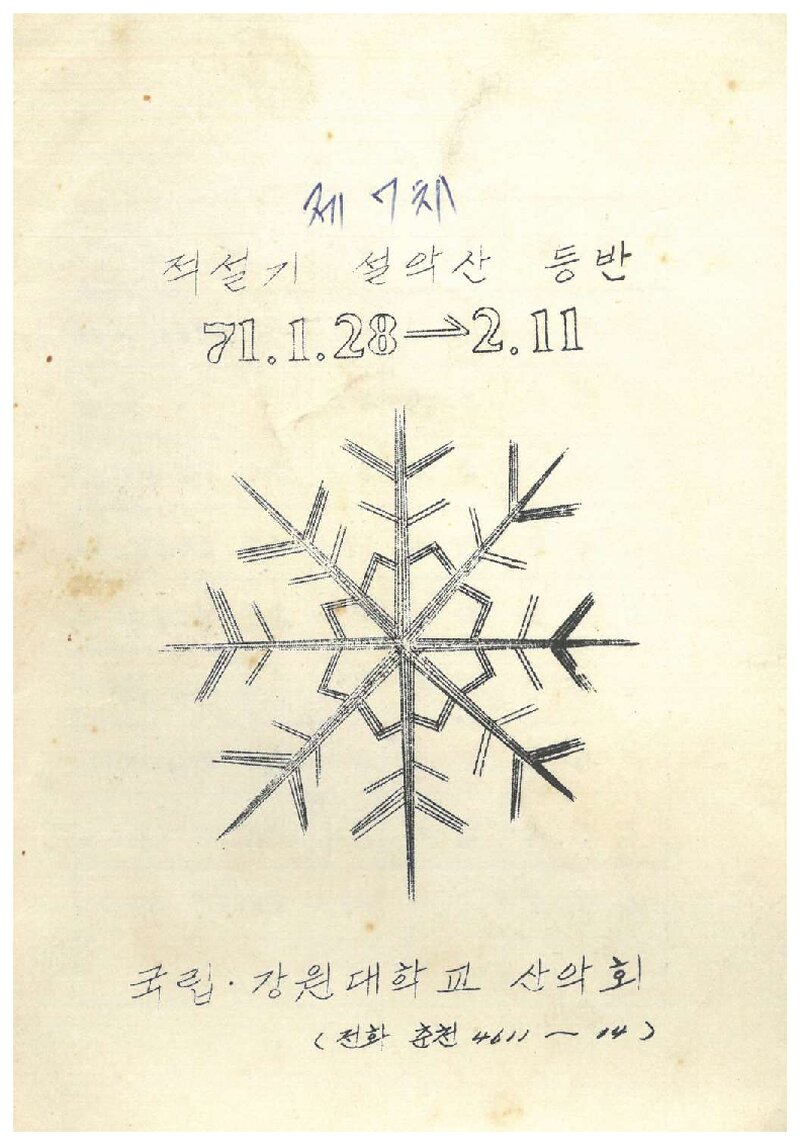 제 7 차
적설기 설악산 등반
71.1.28→2.11
국립·강원대학교 산악회
(전화 춘천 4611 ~ 14)